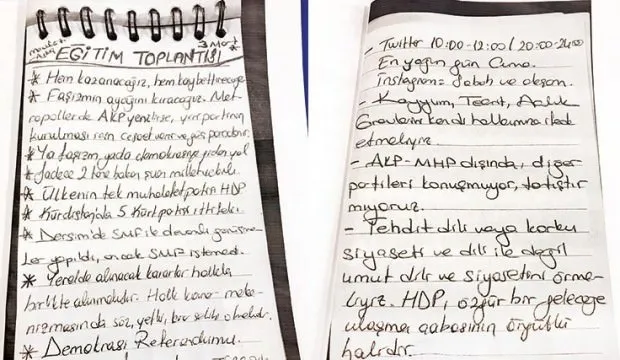 3 Mart
EĞİTİM TOPLANTISI
* Hem kazanacağız, hem kaybettireceğiz
* Faşizmin ayağını kıracağız. Met-
ropollerde AKP yenilirse, yeni partinin
kurulması için cesaret verir ve güç parçalanır.
* Ya faşizm, yada demokrasiye giden yol
* Sadece 2 ile bakan, şuan milletvekili.
* ÜLKENİN tek muhalefet partisi HDP
* Kürdistan'da 5 Kürt partisi ittifakı.
* Dersim'de SMF ile devamlı görüşme-
ler yapıldı, ancak SMF istemedi.
* Yerelde alınacak kararlar halkla
birlikte alınmalıdır. Halk karar meka-
nizmasında söz, yetki, bir sahibi olmalıdır.
* Demokrasi Referandumu.
- Twitter 10:00-12:00 / 20:00-24:00
En yoğun gün Cuma.
İnstagram = Sabah ve akşam.
- Kayyum, Tecrit, Açlık
Grevlerini kendi halkımıza ifade
etmeliyiz.
- AKP-MHP dışında, diğer
partileri konuşmuyor, tartıştır
mıyoruz.
- Tehdit dili veya korku
siyaseti ve dili ile değil
umut dili ve siyasetini örme-
liyiz. HDP, özgür bir geleceğe
ulaşma çabasının örgütlü
halidir.